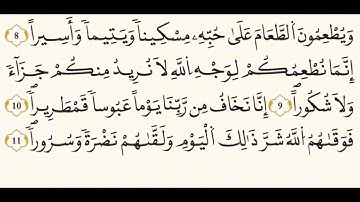 وَيُطْعِمُونَ اَ۬لطَّعَامَ عَلَىٰ حُبِّهِۦ مِسْكِيناٗ وَيَتِيماٗ وَأَسِيراًۖ 8
اِنَّمَا نُطْعِمُكُمْ لِوَجْهِ اِ۬للَّهِ لَا نُرِيدُ مِنكُمْ جَزَآءٗ
وَلَا شُكُوراًۖ 9 اِنَّا نَخَافُ مِن رَّبِّنَا يَوْماً عَبُوساٗ قَمْطَرِيراٗۖ 10
فَوَقَىٰهُمُ اُ۬للَّهُ شَرَّ ذَٰلِكَ اَ۬لْيَوْمِ وَلَقَّىٰهُمْ نَضْرَةٗ وَسُرُوراٗۖ 11